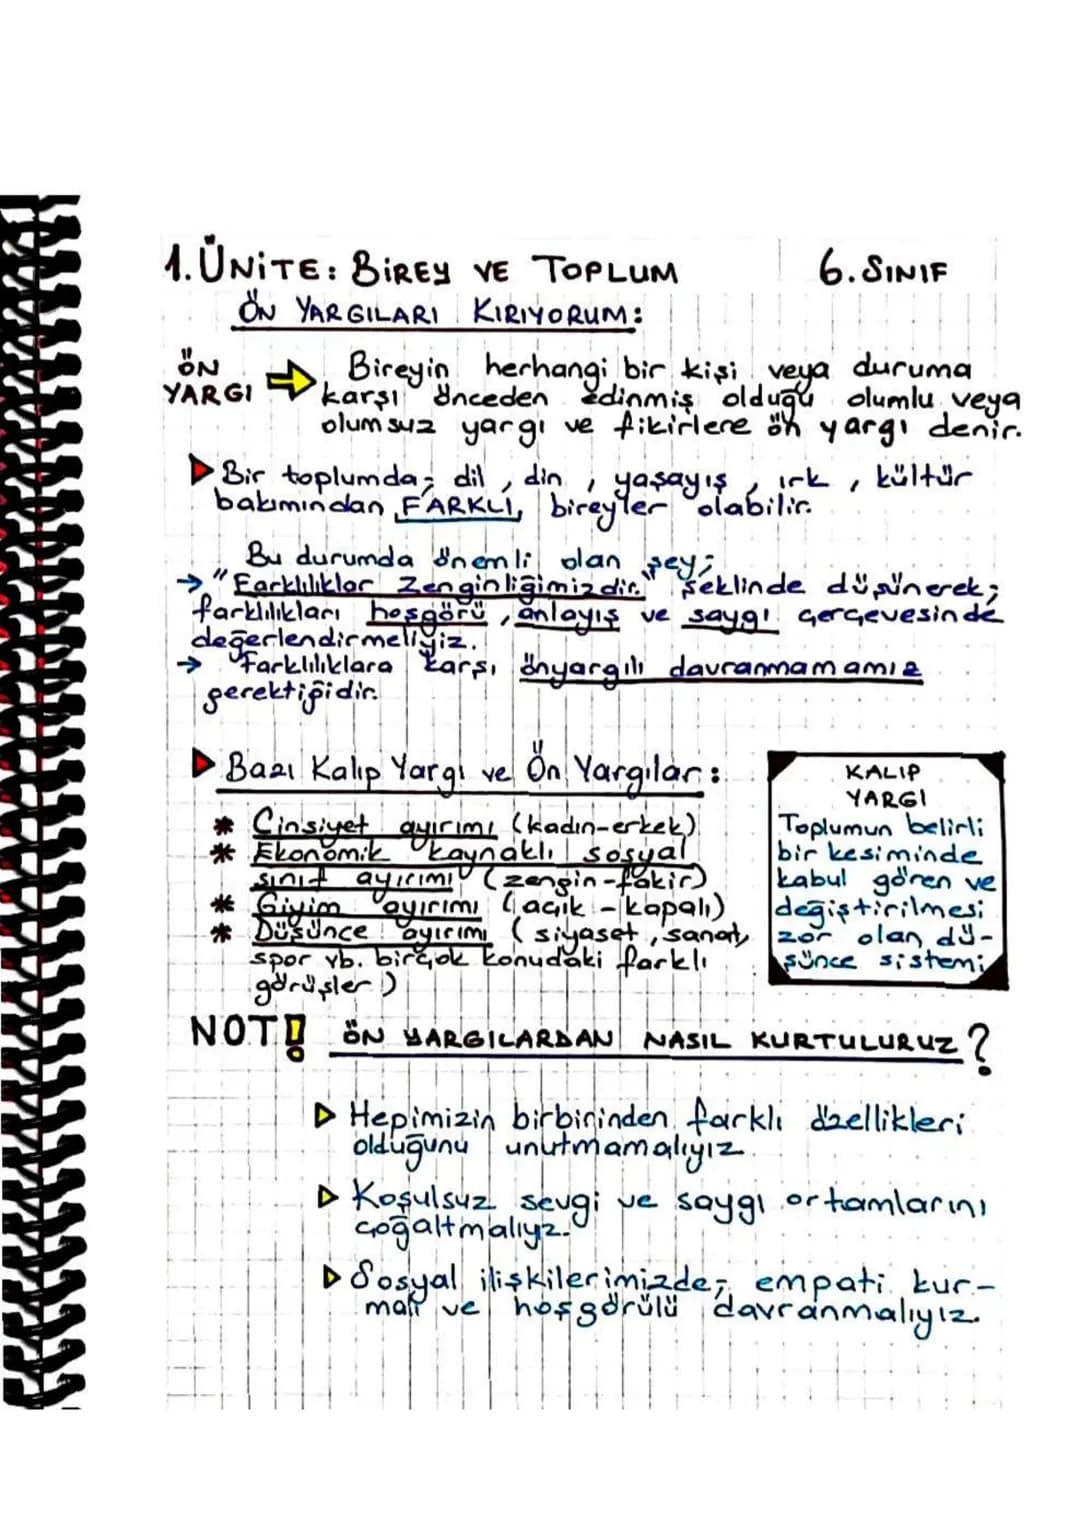 1. ÜNİTE: BİREY VE TOPLUM 6. SINIF
ÖN YARGILARI KIRIYORUM:
ÖN YARGI → Bireyin herhangi bir kişi veya duruma
karşı önceden edinmiş olduğu olumlu veya
olumsuz yargı ve fikirlere ön yargı denir.
Bir toplumda; dil, din, yaşayış, ırk, kültür
bakımından FARKLI bireyler olabilir.
Bu durumda önemli olan şey;
→ "Farklılıklar Zenginliğimizdir." şeklinde düşünerek;
farklılıkları hoşgörü, anlayış ve saygı çerçevesinde
değerlendirmeliyiz.
→ Farklılıklara karşı önyargılı davranmamamız
gerektiğidir.
Bazı Kalıp Yargı ve Ön Yargılar:
* Cinsiyet ayırımı (kadın-erkek)
* Ekonomik kaynaklı sosyal
sınıf ayırımı (zengin-fakir)
* Giyim ayırımı (açık - kapalı)
* Düşünce ayırımı (siyaset, sanat,
spor vb. birçok konudaki farklı
görüşler)
KALIP
YARGI
Toplumun belirli
bir kesiminde
kabul gören ve
değiştirilmesi
zor olan dü-
şünce sistemi
NOT! ÖN YARGILARDAN NASIL KURTULURUZ?
Hepimizin birbirinden farklı özellikleri
olduğunu unutmamalıyız.
Koşulsuz sevgi ve saygı ortamlarını
çoğaltmalıyz.
Sosyal ilişkilerimizde; empati kur-
malı ve hoşgörülü davranmalıyız.